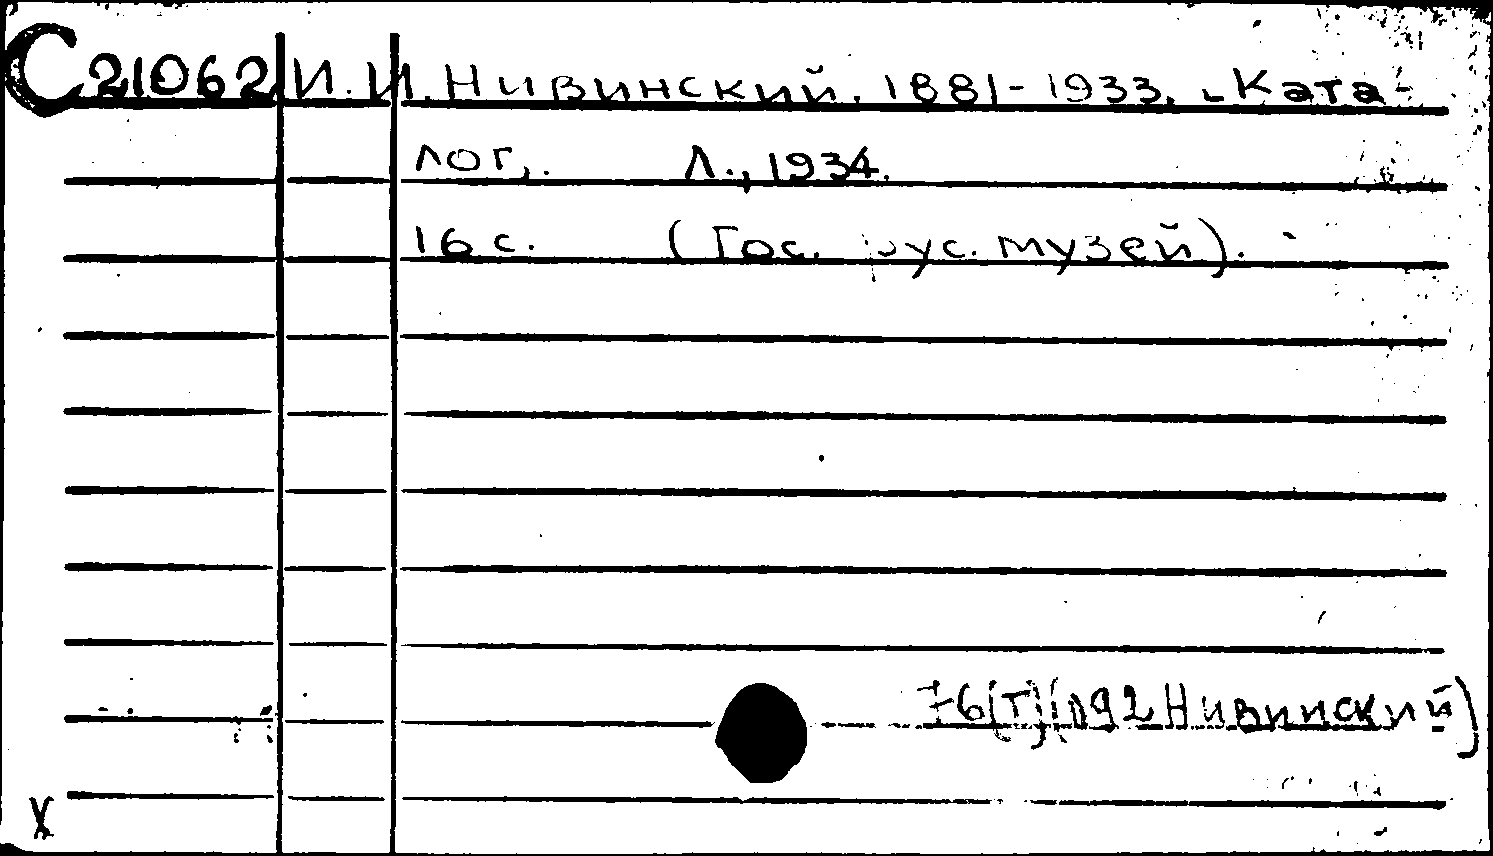 С21062 И. И. Нивинский. 1881-1933. Ката-
лог. Л., 1934.
16 с. (Гос. рус. музей).
76(Т)(092 Нивинский)
X